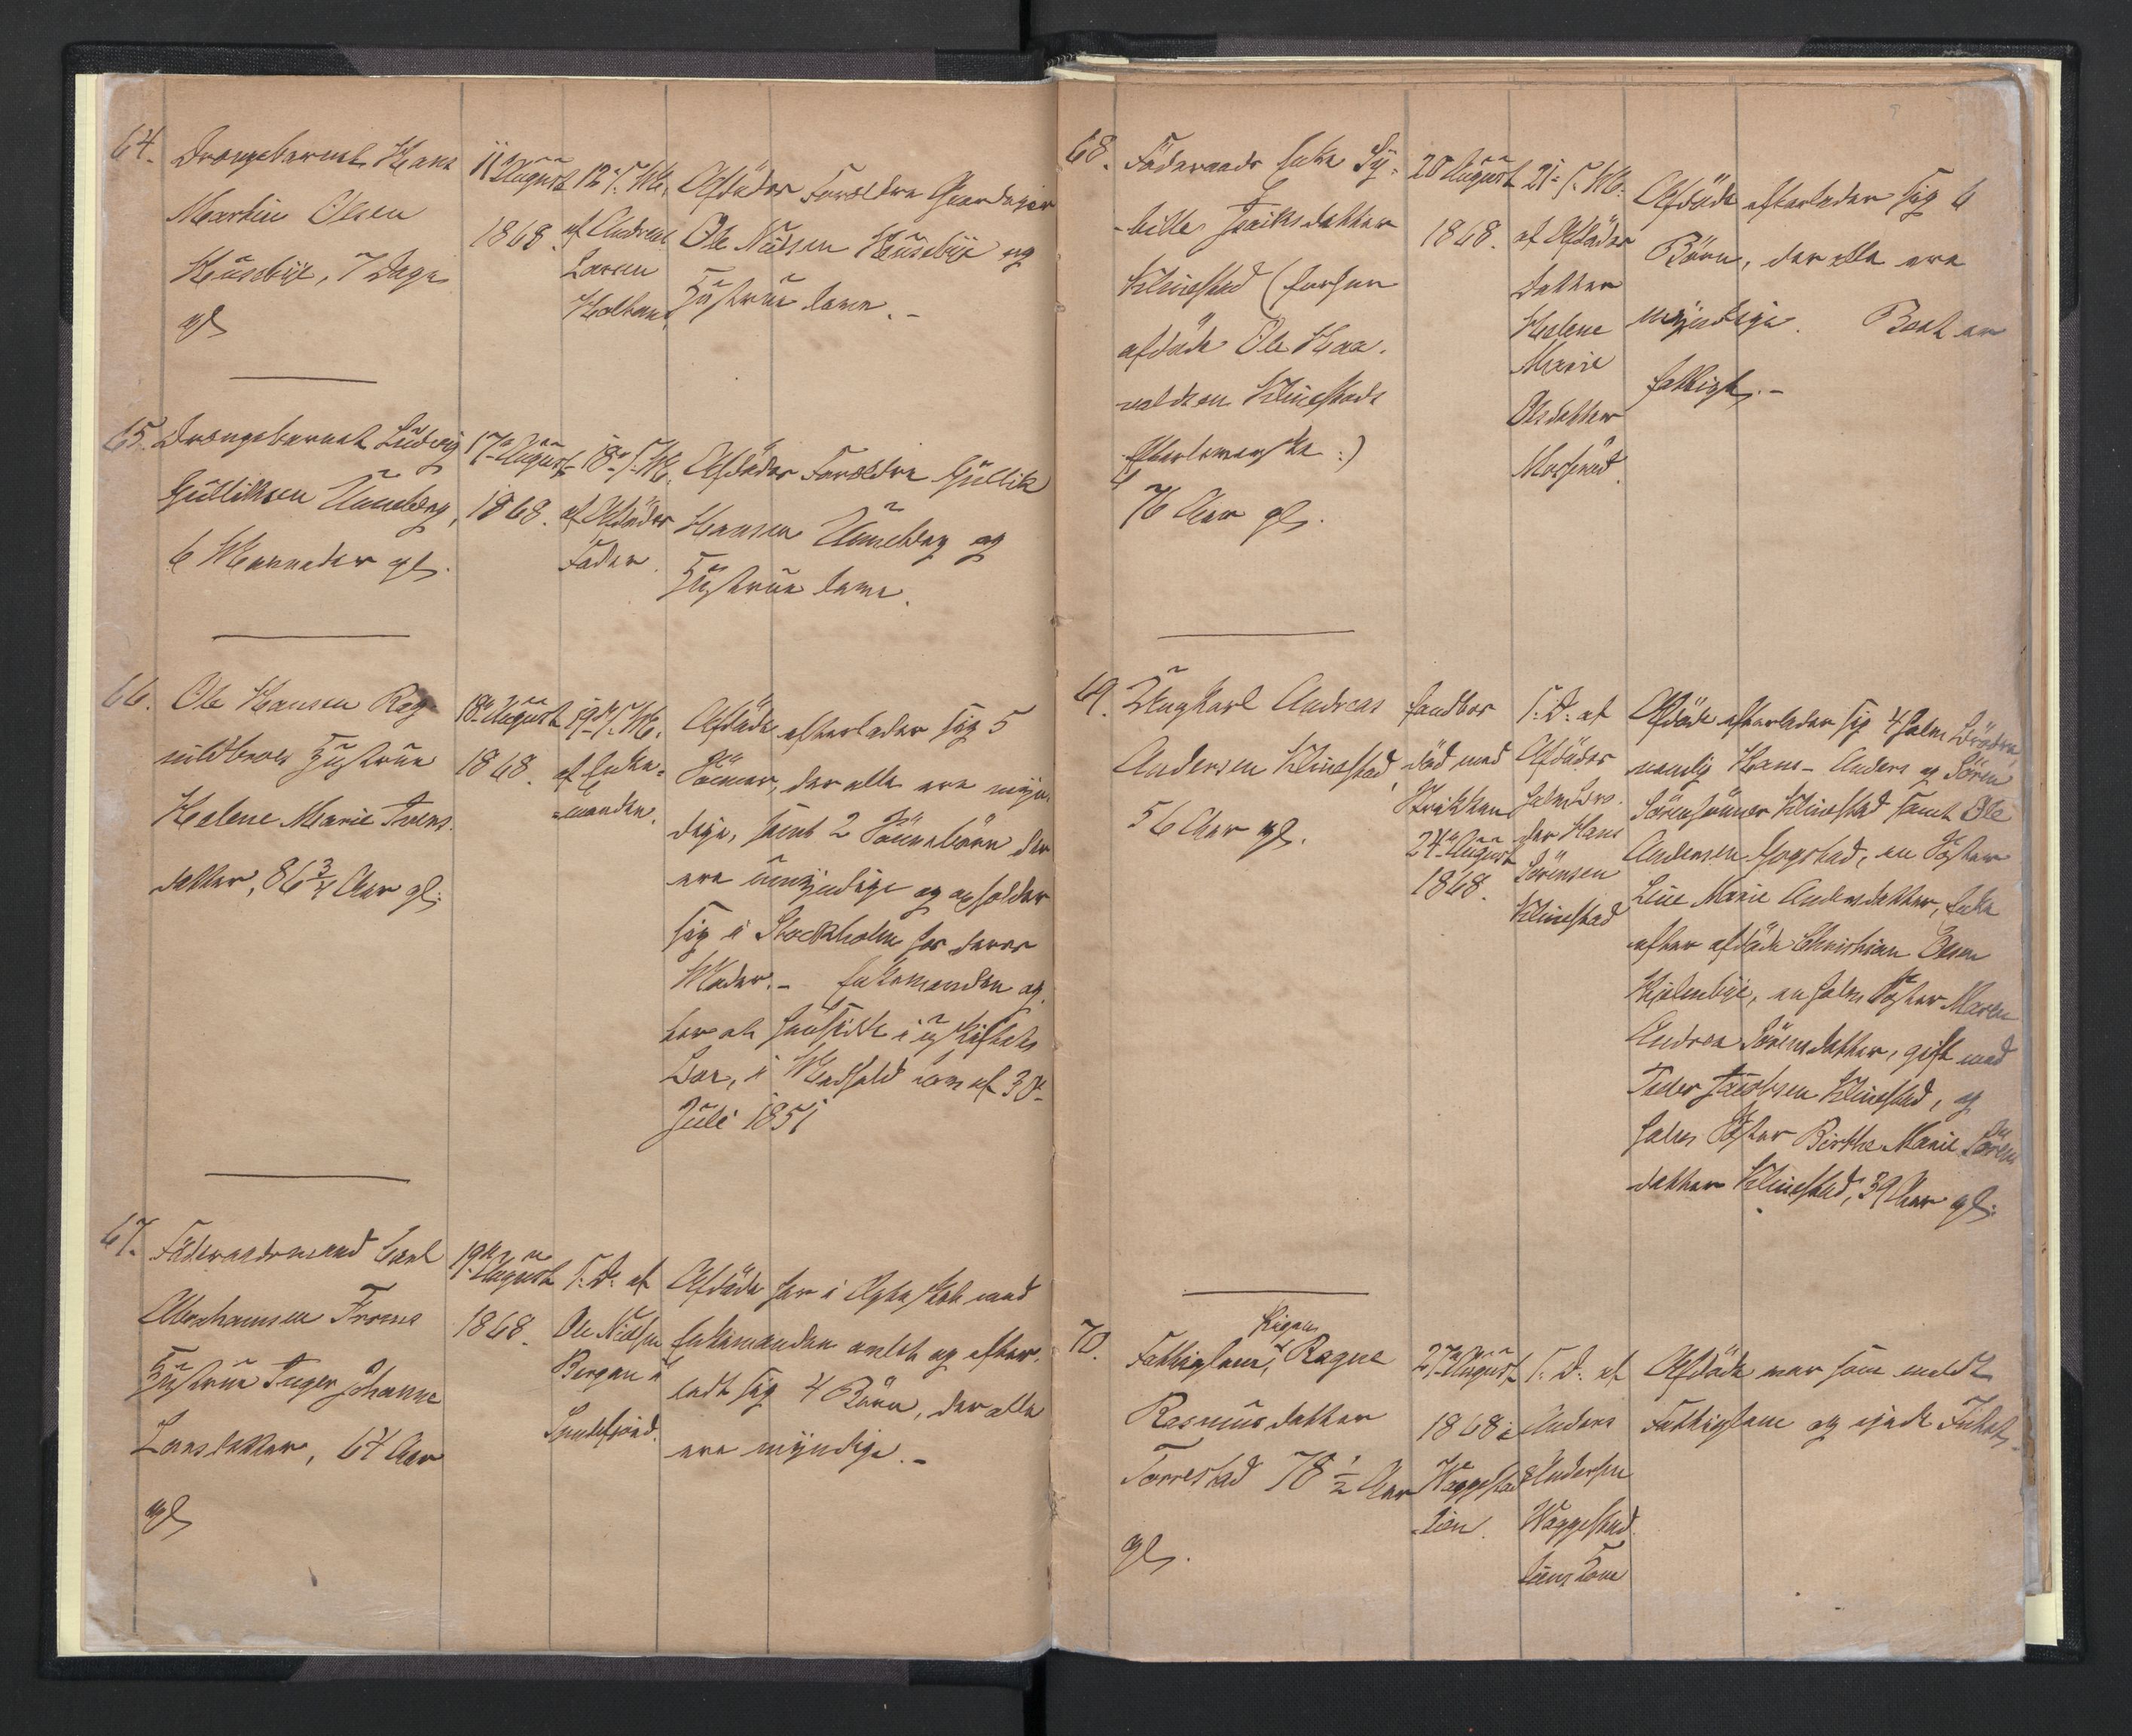 64.
Drengebarnet Hans
Martin Olsen
Huseby, 7 Dage
gl
11 August
1868.
12 s. M.
af Andreas
Larsen
Holtan
Afdödes Forældre Gaardbruger
Ole Nilsen Huseby og
Hustrue lever.-
65.
Drengebarnet Ludvig
Gulliksen Unneberg,
6 Maaneder gl.
17 August
1868.
18 s. M.
af Afdödes
Fader.
Afdödes Forældre Gullik
Hansen Unneberg og
Hustrue leve.
66.
Ole Hansen Rag-
nildbroes Hustrue
Helene Marie Svens-
datter, 86 3/4 Aar gl.
18de August
1868.
19de s. M.
af Enke-
manden.
Afdöde efterlader sig 5
Sönner, der alle ere myn-
dige, samt 2 Sönnebörn der
ere umyndige og opholder
sig i Stockholm hos deres
Moder.- Enkemanden ag-
ter at hensidde i uskiftet
Boe, i Medhold Lov af 30-
Juli 1851
67.
Föderaadsmand Carl
Abrahamsen Fromes
Hustrue Inger Johanne
Larsdatter, 64 Aar
gl
19de August
1868.
S. D. af
Ole Nielsen
Bergan i
Sandefjord.
Afdöde har i Ægteskab med
Enkemanden avlet og efter-
ladt sig 4 Börn, der alle
ere myndige.-
68.
Föderaads Enke Sy-
bille Isaksdatter
Klinestad (forhen
afdöde Ole Haa-
valdsen Klinestads
Efterleverske:)
76 Aar gl.
20 August
1868.
21- s. M.
af Afdödes
Datter
Helene
Marie
Olsdatter
Afdöde efterlader sig 6
Börn, der alle ere
myndige. Boet er
fattigt.-
69.
Ungkarl Andreas
Andersen Klinestad
56 Aar gl.
fandtes
död ved
24 August
1868.
S. D. af
Afdödes
Halvbro-
der Hans
Sörensen
Klinestad
Afdöde efterlader sig 4 halv Brödre
nemlig Hans- Anders og Sören
Sörensönner Klinestad samt Ole
Andersen Gogstad, en Söster
Line Marie Andersdatter, Enke
efter afdöde Christian Olsen
Hjelmbye, en halv Söster Maren
Andrea Sörensdatter, gift med
Peder Jacobsen Klinestad, og
halv Söster Birthe Marie Sörens
datter Klinestad, 39 Aar gl.
70.
Pigen
Fattiglem, Ragne
Rasmusdatter
Torrestad 78 1/2 Aar
gl.
27 August
1868 i
Waggestad
Lien.
S. D. af
Anders
Andersen
Waggestad
Afdöde var som meldt
Fattiglem og ejede Intet.